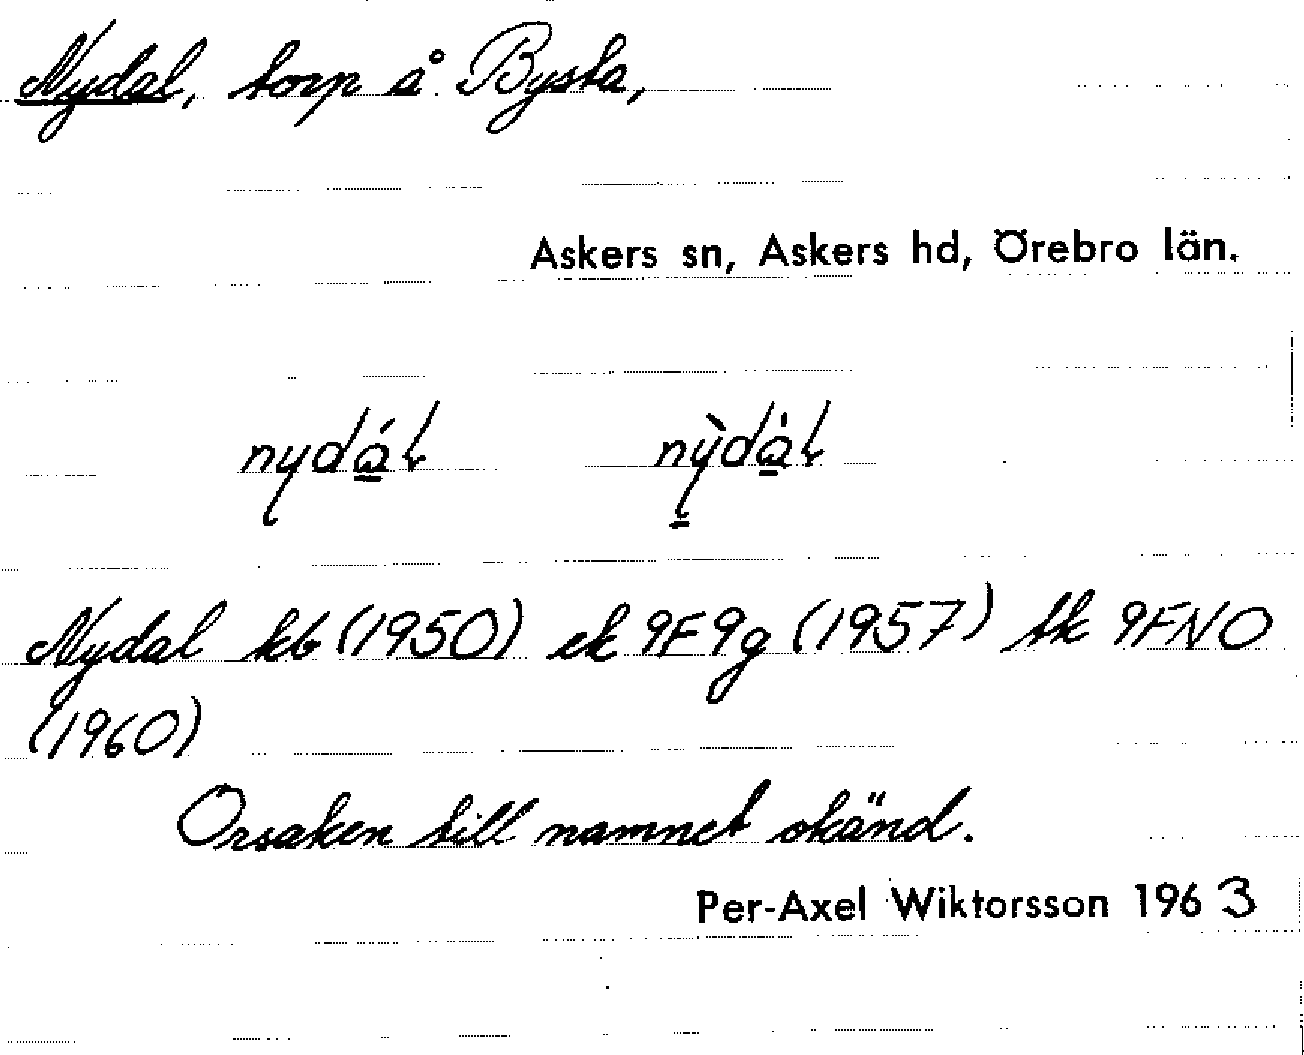 Nydal, torp å Bysta,
Askers sn, Askers hd, Örebro län.
nydál nỳdȧl
Nydal kb (1950) ek 9F9g (1957) tk 9FNO
(1960)
Orsaken till namnet okänd.
Per-Axel Wiktorsson 1963